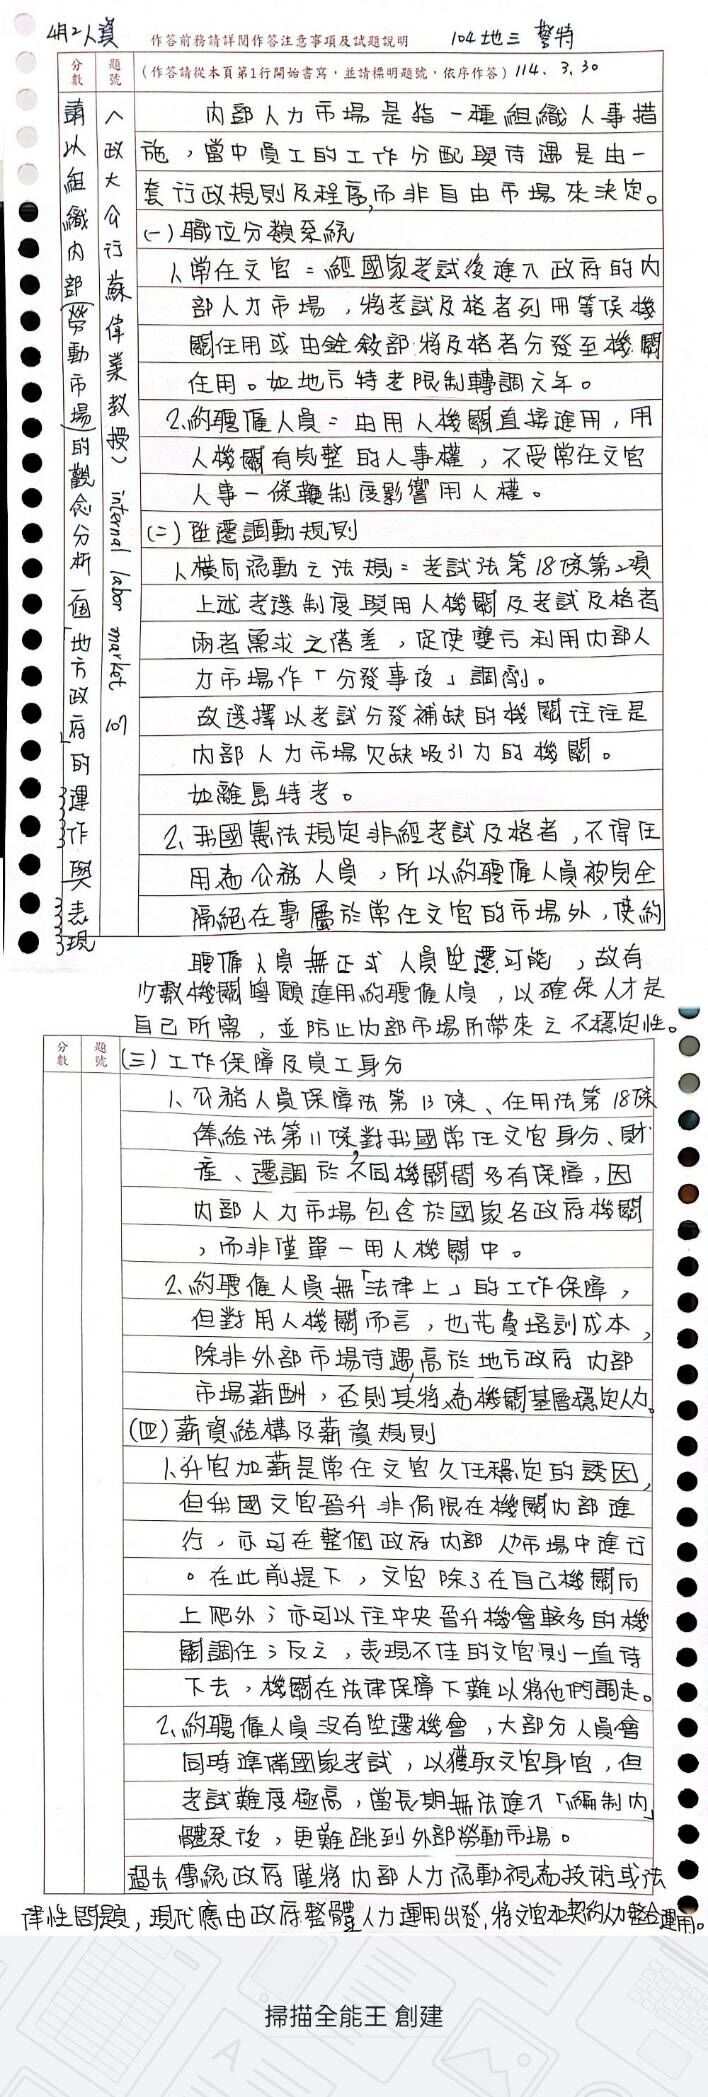 4月2人資
作答前務請詳閱作答注意事項及試題說明
104地三 警特
分數
題號
(作答請從本頁第1行開始書寫,並請標明題號,依序作答) 114、3.30
請以組織內部(勞動市場)的觀念分析一個「地方政府」的運作與表現
(政大公行蘇偉業教授) internal labor market 107
內部人力市場是指一種組織人事措
施,當中員工的工作分配與待遇是由一
套行政規則及程序,而非自由市場來決定。
(一)職位分類系統
1.常任文官:經國家考試後進入政府的內
部人力市場,將考試及格者列冊等侯機
關任用或由銓敘部將及格者分發至機關
任用。如地方特考限制轉調六年。
2.約聘僱人員:由用人機關直接進用,用
人機關有完整的人事權,不受常任文官
人事一條鞭制度影響用人權。
(二)陞遷調動規則
1.橫向流動之法規:考試法第18條第2項
上述考選制度與用人機關及考試及格者
兩者需求之落差,促使雙方利用內部人
力市場作「分發事後」調劑。
故選擇以考試分發補缺的機關往往是
內部人力市場欠缺吸引力的機關。
如離島特考。
2.我國憲法規定非經考試及格者,不得任
用為公務人員,所以約聘僱人員被完全
隔絕在專屬於常任文官的市場外,使約
聘僱人員無正式人員陞遷可能,故有
少數機關寧願進用約聘僱人員,以確保人才是
自己所需,並防止內部市場所帶來之不穩定性。
分數
題號
(三)工作保障及員工身分
1、公務人員保障法第13條、任用法第18條
俸給法第11條,對我國常任文官身分、財
產、遷調於不同機關間多有保障,因
內部人力市場包含於國家各政府機關
,而非僅單一用人機關中。
2.約聘僱人員無「法律上」的工作保障,
但對用人機關而言,也花費培訓成本,
除非外部市場待遇高於地方政府內部
市場薪酬,否則其將為機關基層穩定人力。
(四)薪資結構及薪資規則
1.升官加薪是常任文官久任穩定的誘因,
但我國文官晉升非侷限在機關內部進
行,亦可在整個政府內部人力市場中進行
。在此前提下,文官除了在自己機關向
上爬外;亦可以往中央晉升機會較多的機
關調任;反之,表現不佳的文官則一直待
下去,機關在法律保障下難以將他們調走。
2.約聘僱人員沒有陞遷機會,大部分人員會
同時準備國家考試,以獲取文官身官,但
考試難度極高,當長期無法進入「編制內」
體系後,更難跳到外部勞動市場。
過去傳統政府僅將內部人力流動視為技術或法
律性問題,現代應由政府整體人力運用出發,將文官和契約人力整合運用。
掃描全能王 創建